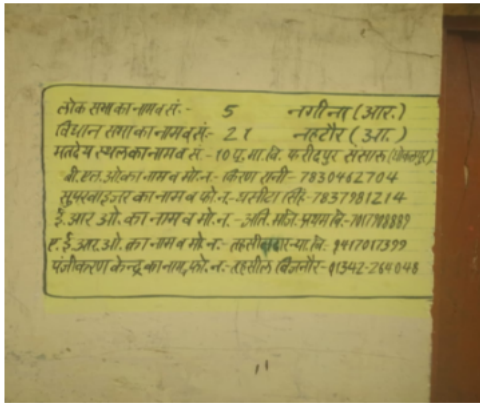 लोक सभा का नाम व सं.- 5 नगीना (आर.)
विधान सभा का नाम व सं:- 21 नहटौर (आ.)
मतदेय स्थल का नाम व सं.- 10 पू.मा.वि. फरीदपुर संसारू
बी.एल.ओ. का नाम व मो.न.- किरण रानी - 7830462704
सुपरवाइजर का नाम व फो.न.- घसीटा सिंह- 7837981214
ई.आर.ओ. का नाम व मो.न.- अति. मजि. प्रथम बि.-
ए.ई.आर.ओ. का नाम व मो.न.- तहसीलदार
पंजीकरण केन्द्र का नाम, फो.न.- तहसील बिजनौर- 01342-264048